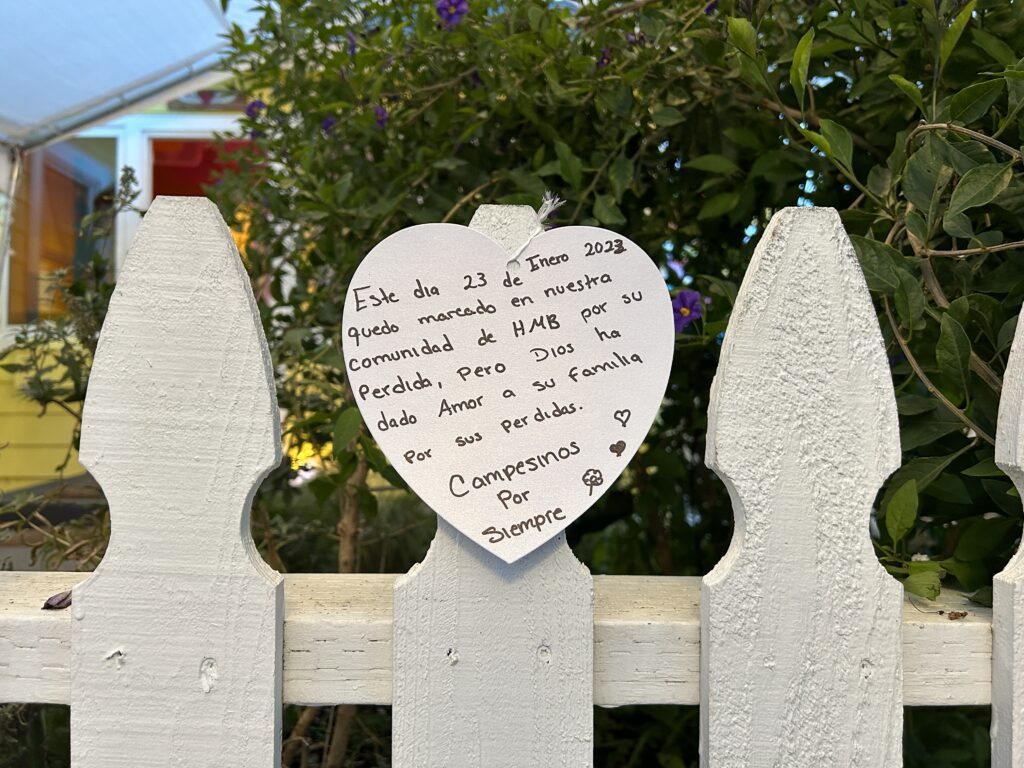 Este dia 23 de Inero 2023
quedo marcado en nuestra
comunidad de HMB por su
perdida, pero Dios ha
dado Amor a su familia
por sus perdidas.
Campesinos
Por
Siempre